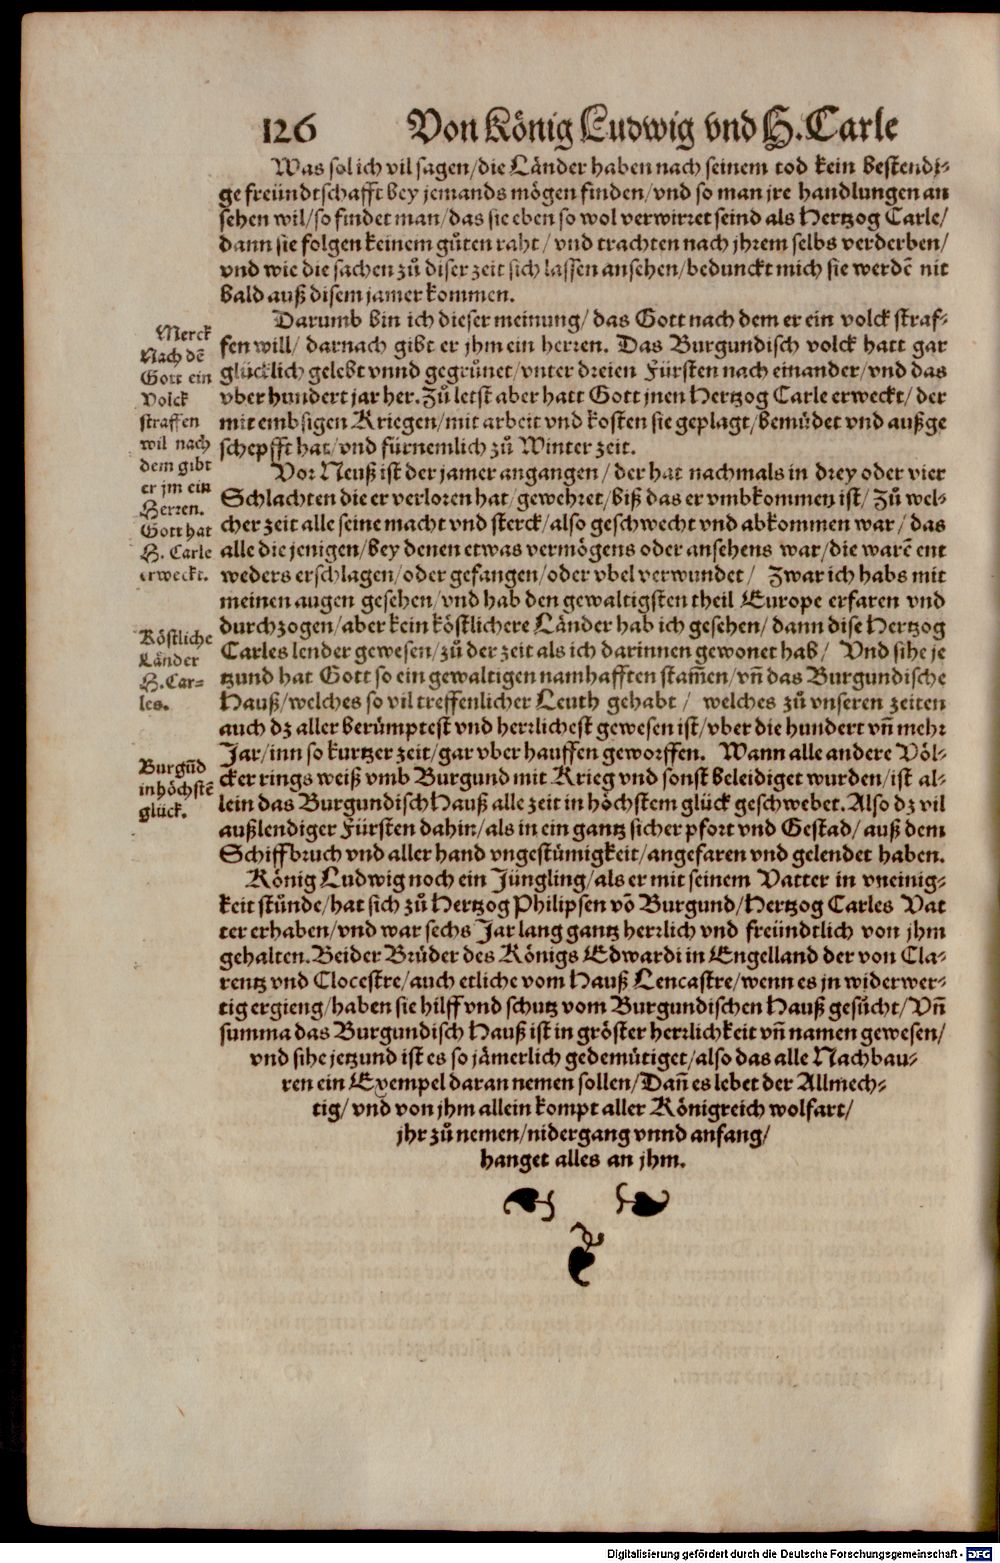 126 Von König Ludwig vnd H. Carle
Was sol ich vil sagen/die Länder haben nach seinem tod kein bestendi⸗
ge freündtschafft bey jemands mögen finden/vnd so man jre handlungen an
sehen wil/so findet man/das sie eben so wol verwirret seind als Hertzog Carle/
dann sie folgen keinem gůten raht/vnd trachten nach jhrem selbs verderben/
vnd wie die sachen zů diser zeit sich lassen ansehen/bedunckt mich sie werdē nit
bald auß disem jamer kommen.
Darumb bin ich dieser meinung/das Gott nach dem er ein volck straf⸗
fen will/ darnach gibt er jhm ein herren. Das Burgundisch volck hatt gar
glücklich gelebt vnnd gegrünet/vnter dreien Fürsten nach einander/vnd das
vber hundert jar her. Zů letst aber hatt Gott jnen Hertzog Carle erweckt/der
mit embsigen Kriegen/mit arbeit vnd kosten sie geplagt/bemüdet vnd außge
schepfft hat/vnd fürnemlich zů Winter zeit.
Merck
Nach dē
Gott ein
Volck
straffen
wil nach
dem gibt
er jm ein
Herren.
Gott hat
H. Carle
erweckt.
Vor Neuß ist der jamer angangen/der hat nachmals in drey oder vier
Schlachten die er verloren hat/gewehret/biß das er vmbkommen ist/Zů wel⸗
cher zeit alle seine macht vnd sterck/also geschwecht vnd abkommen war/das
alle die jenigen/bey denen etwas vermögens oder ansehens war/die warē ent
weders erschlagen/oder gefangen/oder vbel verwundet/ Zwar ich habs mit
meinen augen gesehen/vnd hab den gewaltigsten theil Europe erfaren vnd
durchzogen/aber kein köstlichere Länder hab ich gesehen/dann dise Hertzog
Carles lender gewesen/zů der zeit als ich darinnen gewonet hab/ Vnd sihe je
tzund hat Gott so ein gewaltigen namhafften stam̄en/vn̄ das Burgundische
Hauß/welches so vil treffenlicher Leuth gehabt/ welches zů vnseren zeiten
auch dz aller berümptest vnd herrlichest gewesen ist/vber die hundert vn̄ mehr
Jar/inn so kurtzer zeit/gar vber hauffen geworffen. Wann alle andere Völ⸗
cker rings weiß vmb Burgund mit Krieg vnd sonst beleidiget wurden/ist al⸗
lein das Burgundisch Hauß alle zeit in höchstem glück geschwebet. Also dz vil
außlendiger Fürsten dahin/als in ein gantz sicher pfort vnd Gestad/auß dem
Schiffbruch vnd aller hand vngestümigkeit/angefaren vnd gelendet haben.
Köstliche
Länder
H. Car⸗
les.
Burgūd
in höchstē
glück.
König Ludwig noch ein Jüngling/als er mit seinem Vatter in vneinig⸗
keit stůnde/hat sich zů Hertzog Philipsen vō Burgund/Hertzog Carles Vat
ter erhaben/vnd war sechs Jar lang gantz herrlich vnd freündtlich von jhm
gehalten. Beider Brüder des Königs Edwardi in Engelland der von Cla⸗
rentz vnd Clocestre/auch etliche vom Hauß Lencastre/wenn es jn widerwer⸗
tig ergieng/haben sie hilff vnd schutz vom Burgundischen Hauß gesůcht/Vn̄
summa das Burgundisch Hauß ist in gröster herrlichkeit vn̄ namen gewesen/
vnd sihe jetzund ist es so jämerlich gedemütiget/also das alle Nachbau⸗
ren ein Exempel daran nemen sollen/Dan̄ es lebet der Allmech⸗
tig/vnd von jhm allein kompt aller Königreich wolfart/
jhr zů nemen/nidergang vnnd anfang/
hanget alles an jhm.
Digitalisierung gefördert durch die Deutsche Forschungsgemeinschaft - DFG